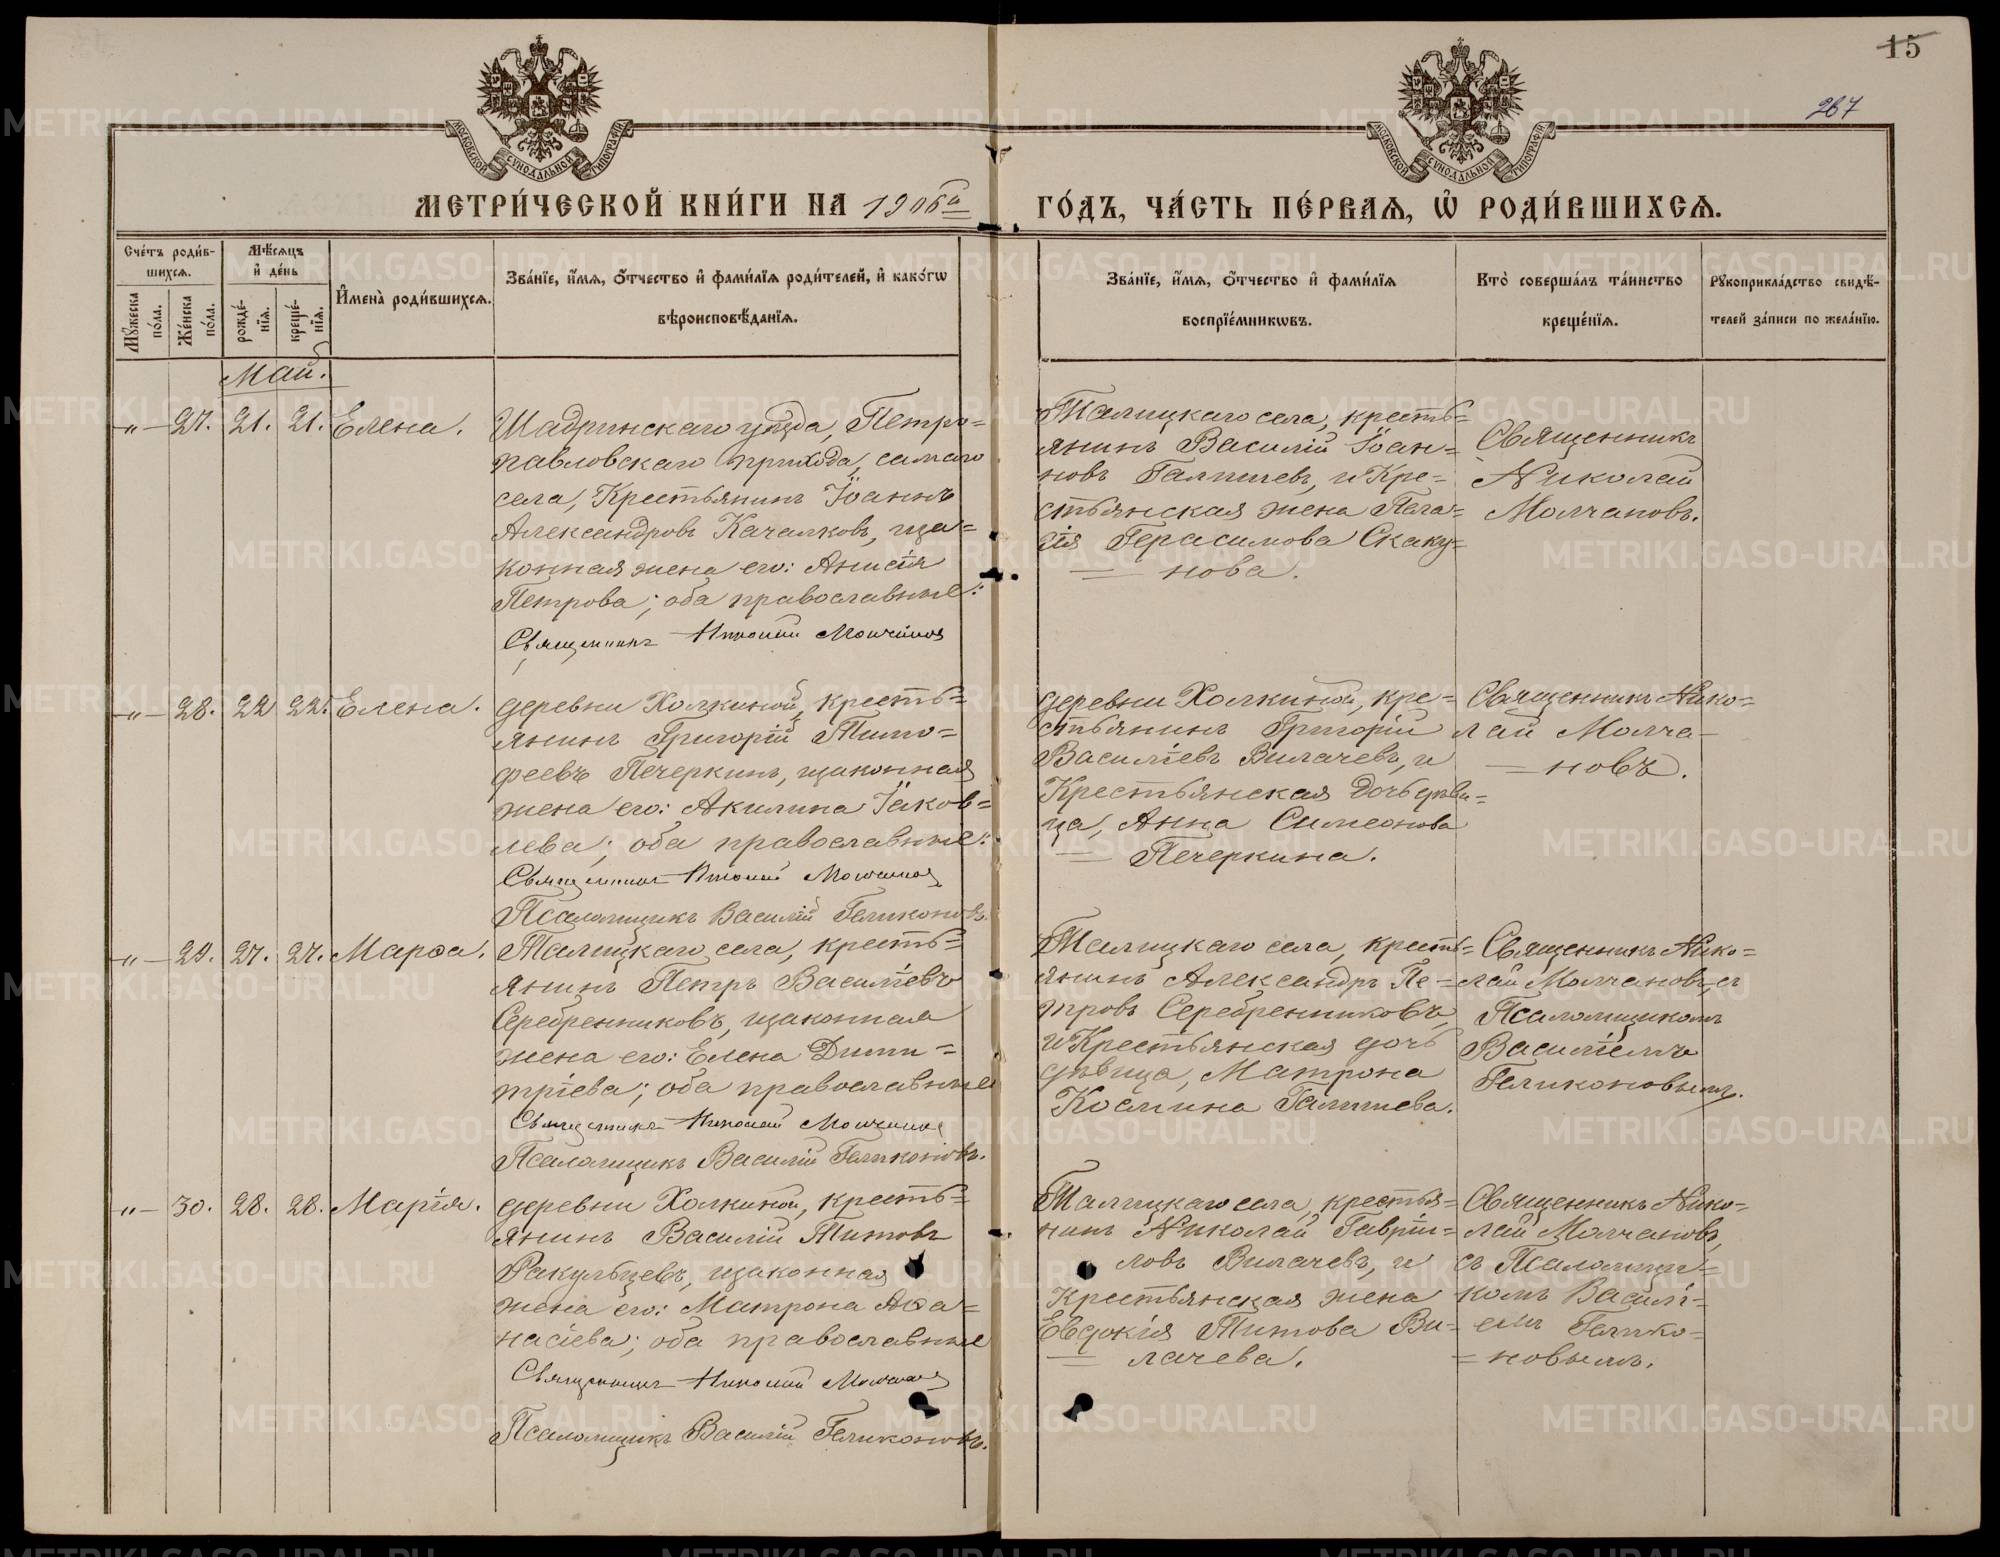 15
267
МОСКОВСКОЙ СѴНОДАЛЬНОЙ ТИПОГРАФІИ
МОСКОВСКОЙ СѴНОДАЛЬНОЙ ТИПОГРАФІИ
МЕТРИ́ЧЕСКОЙ КНИ́ГИ НА 1906й ГО́ДЪ, ЧА́СТЬ ПЕ́РВАѦ, Ѡ҆ РОДИ́ВШИХСѦ.
Сче́тъ роди́в-
шихсѧ.
Мꙋ́жеска по́ла.
Же́нска по́ла.
Мѣ́сѧцъ
и҆ де́нь
рожде́-
нїѧ.
креще́-
нїѧ.
И҆мена̀ роди́вшихсѧ.
Зва́нїе, и҆́мѧ, ѻ҆́тчество и҆ фами́лїѧ роди́телей, и҆ како́гѡ
вѣроисповѣ́данїѧ.
Зва́нїе, и҆́мѧ, ѻ҆́тчество и҆ фами́лїѧ
воспрїе́мникѡвъ.
Кто̀ соверша́лъ та́инство
креще́нїѧ.
Рꙋкоприкла́дство свидѣ́-
телей за́писи по жела́нїю.
Май.
-„- 27. 21. 21. Елена.
Шадринскаго уѣзда, Петро=
павловскаго прихода, самаго
села, Крестьянинъ Іоаннъ
Александровъ Качалковъ, и за=
конная жена его: Анисія
Петрова; оба православные.
Священникъ Николай Молчановъ
Талицкаго села, кресть=
янинъ Василій Іоан=
новъ Галишевъ, и Кре=
стьянская жена Пела=
гія Герасимова Скаку=
нова.
Священникъ
Николай
Молчановъ.
-„- 28. 22 22. Елена.
деревни Холкиной, кресть=
янинъ Григорій Тимо=
феевъ Печеркинъ, и законная
жена его: Акилина Іаков=
лева; оба православные.
Священникъ Николай Молчановъ
Псаломщикъ Василій Геликоновъ.
деревни Холкиной, кре=
стьянинъ Григорій
Василіевъ Вилачевъ, и
Крестьянская дочь дѣви=
ца, Анна Симеонова
Печеркина.
Священникъ Нико=
лай Молча-
новъ.
-„- 29. 27. 27. Марѳа.
Талицкаго села, кресть=
янинъ Петръ Василіевъ
Серебренниковъ, и законная
жена его: Елена Дими=
тріева; оба православные
Священникъ Николай Молчановъ
Псаломщикъ Василій Геликоновъ.
Талицкаго села, кресть=
янинъ Александръ Пе=
тровъ Серебренниковъ,
и Крестьянская дочь
дѣвица, Матрона
Косьмина Галишева.
Священникъ Нико=
лай Молчановъ, съ
Псаломщикомъ
Василіемъ
Геликоновымъ.
-„- 30. 28. 28. Марія.
деревни Холкиной, кресть=
янинъ Василій Титовъ
Ракульцевъ, и законная
жена его: Матрона Аѳа=
насіева; оба православные
Священникъ Николай Молчановъ
Псаломщикъ Василій Геликоновъ.
Талицкаго села, крестья=
нинъ Николай Гавріи=
ловъ Вилачевъ, и
Крестьянская жена
Евдокія Титова Ви=
лачева.
Священникъ Нико=
лай Молчановъ,
съ Псаломщи=
комъ Василі=
емъ Гелико=
новымъ.